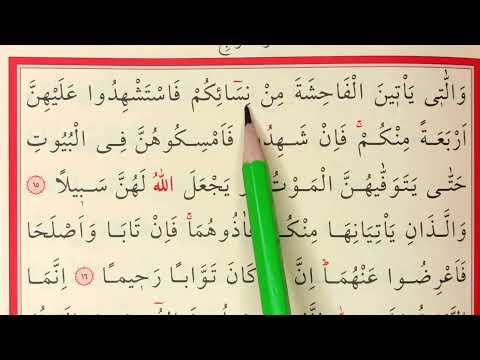 وَالّٰتٖى يَاْتٖينَ الْفَاحِشَةَ مِنْ نِسَٓائِكُمْ فَاسْتَشْهِدُوا عَلَيْهِنَّ
اَرْبَعَةً مِنْكُمْۚ فَاِنْ شَهِدُ فَاَمْسِكُوهُنَّ فِى الْبُيُوتِ
حَتّٰى يَتَوَفّٰيهُنَّ الْمَوْتُ يَجْعَلَ اللّٰهُ لَهُنَّ سَبٖيلًا ١٥
وَالَّذَانِ يَاْتِيَانِهَا مِنْكُ فَاٰذُوهُمَاۚ فَاِنْ تَابَا وَاَصْلَحَا
فَاَعْرِضُوا عَنْهُمَاۜ اِنَّ كَانَ تَوَّابًا رَحٖيمًا ١٦ اِنَّمَا